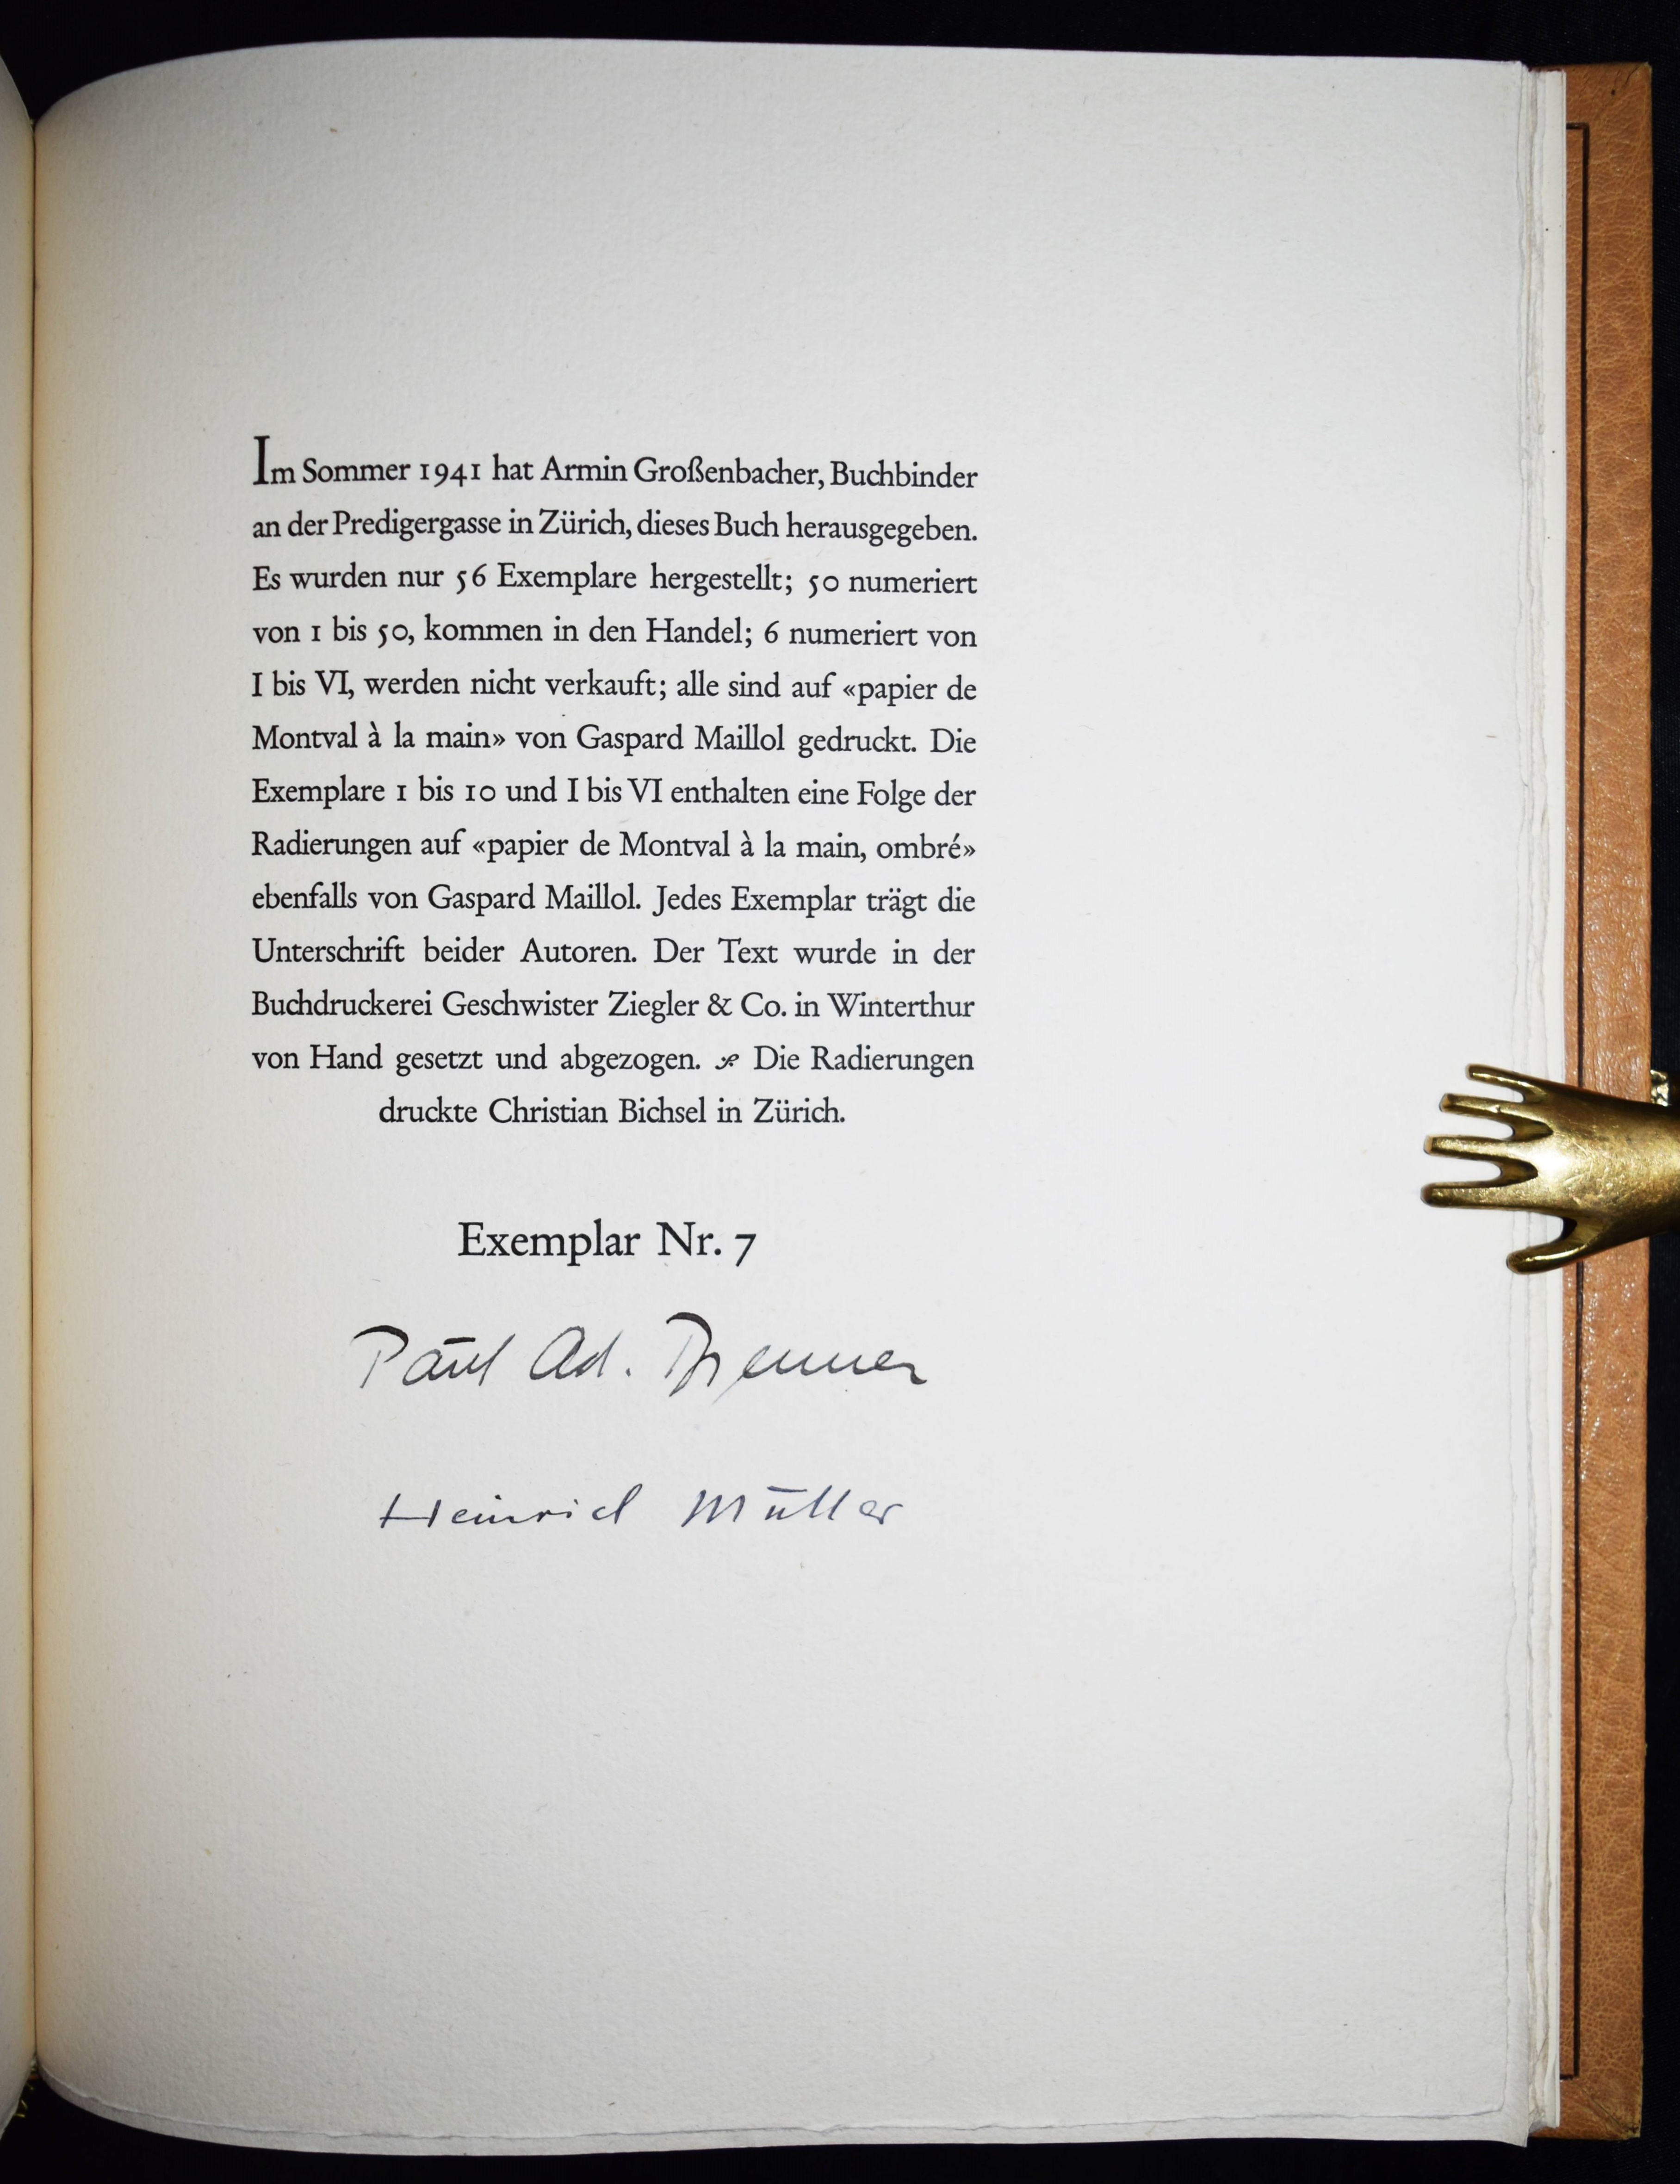 Im Sommer 1941 hat Armin Großenbacher, Buchbinder
an der Predigergasse in Zürich, dieses Buch herausgegeben.
Es wurden nur 56 Exemplare hergestellt; 50 numeriert
von 1 bis 50, kommen in den Handel; 6 numeriert von
I bis VI, werden nicht verkauft; alle sind auf «papier de
Montval à la main» von Gaspard Maillol gedruckt. Die
Exemplare 1 bis 10 und I bis VI enthalten eine Folge der
Radierungen auf «papier de Montval à la main, ombré»
ebenfalls von Gaspard Maillol. Jedes Exemplar trägt die
Unterschrift beider Autoren. Der Text wurde in der
Buchdruckerei Geschwister Ziegler & Co. in Winterthur
von Hand gesetzt und abgezogen. Die Radierungen
druckte Christian Bichsel in Zürich.
Exemplar Nr. 7
Paul Ad. Brenner
Heinrich Müller